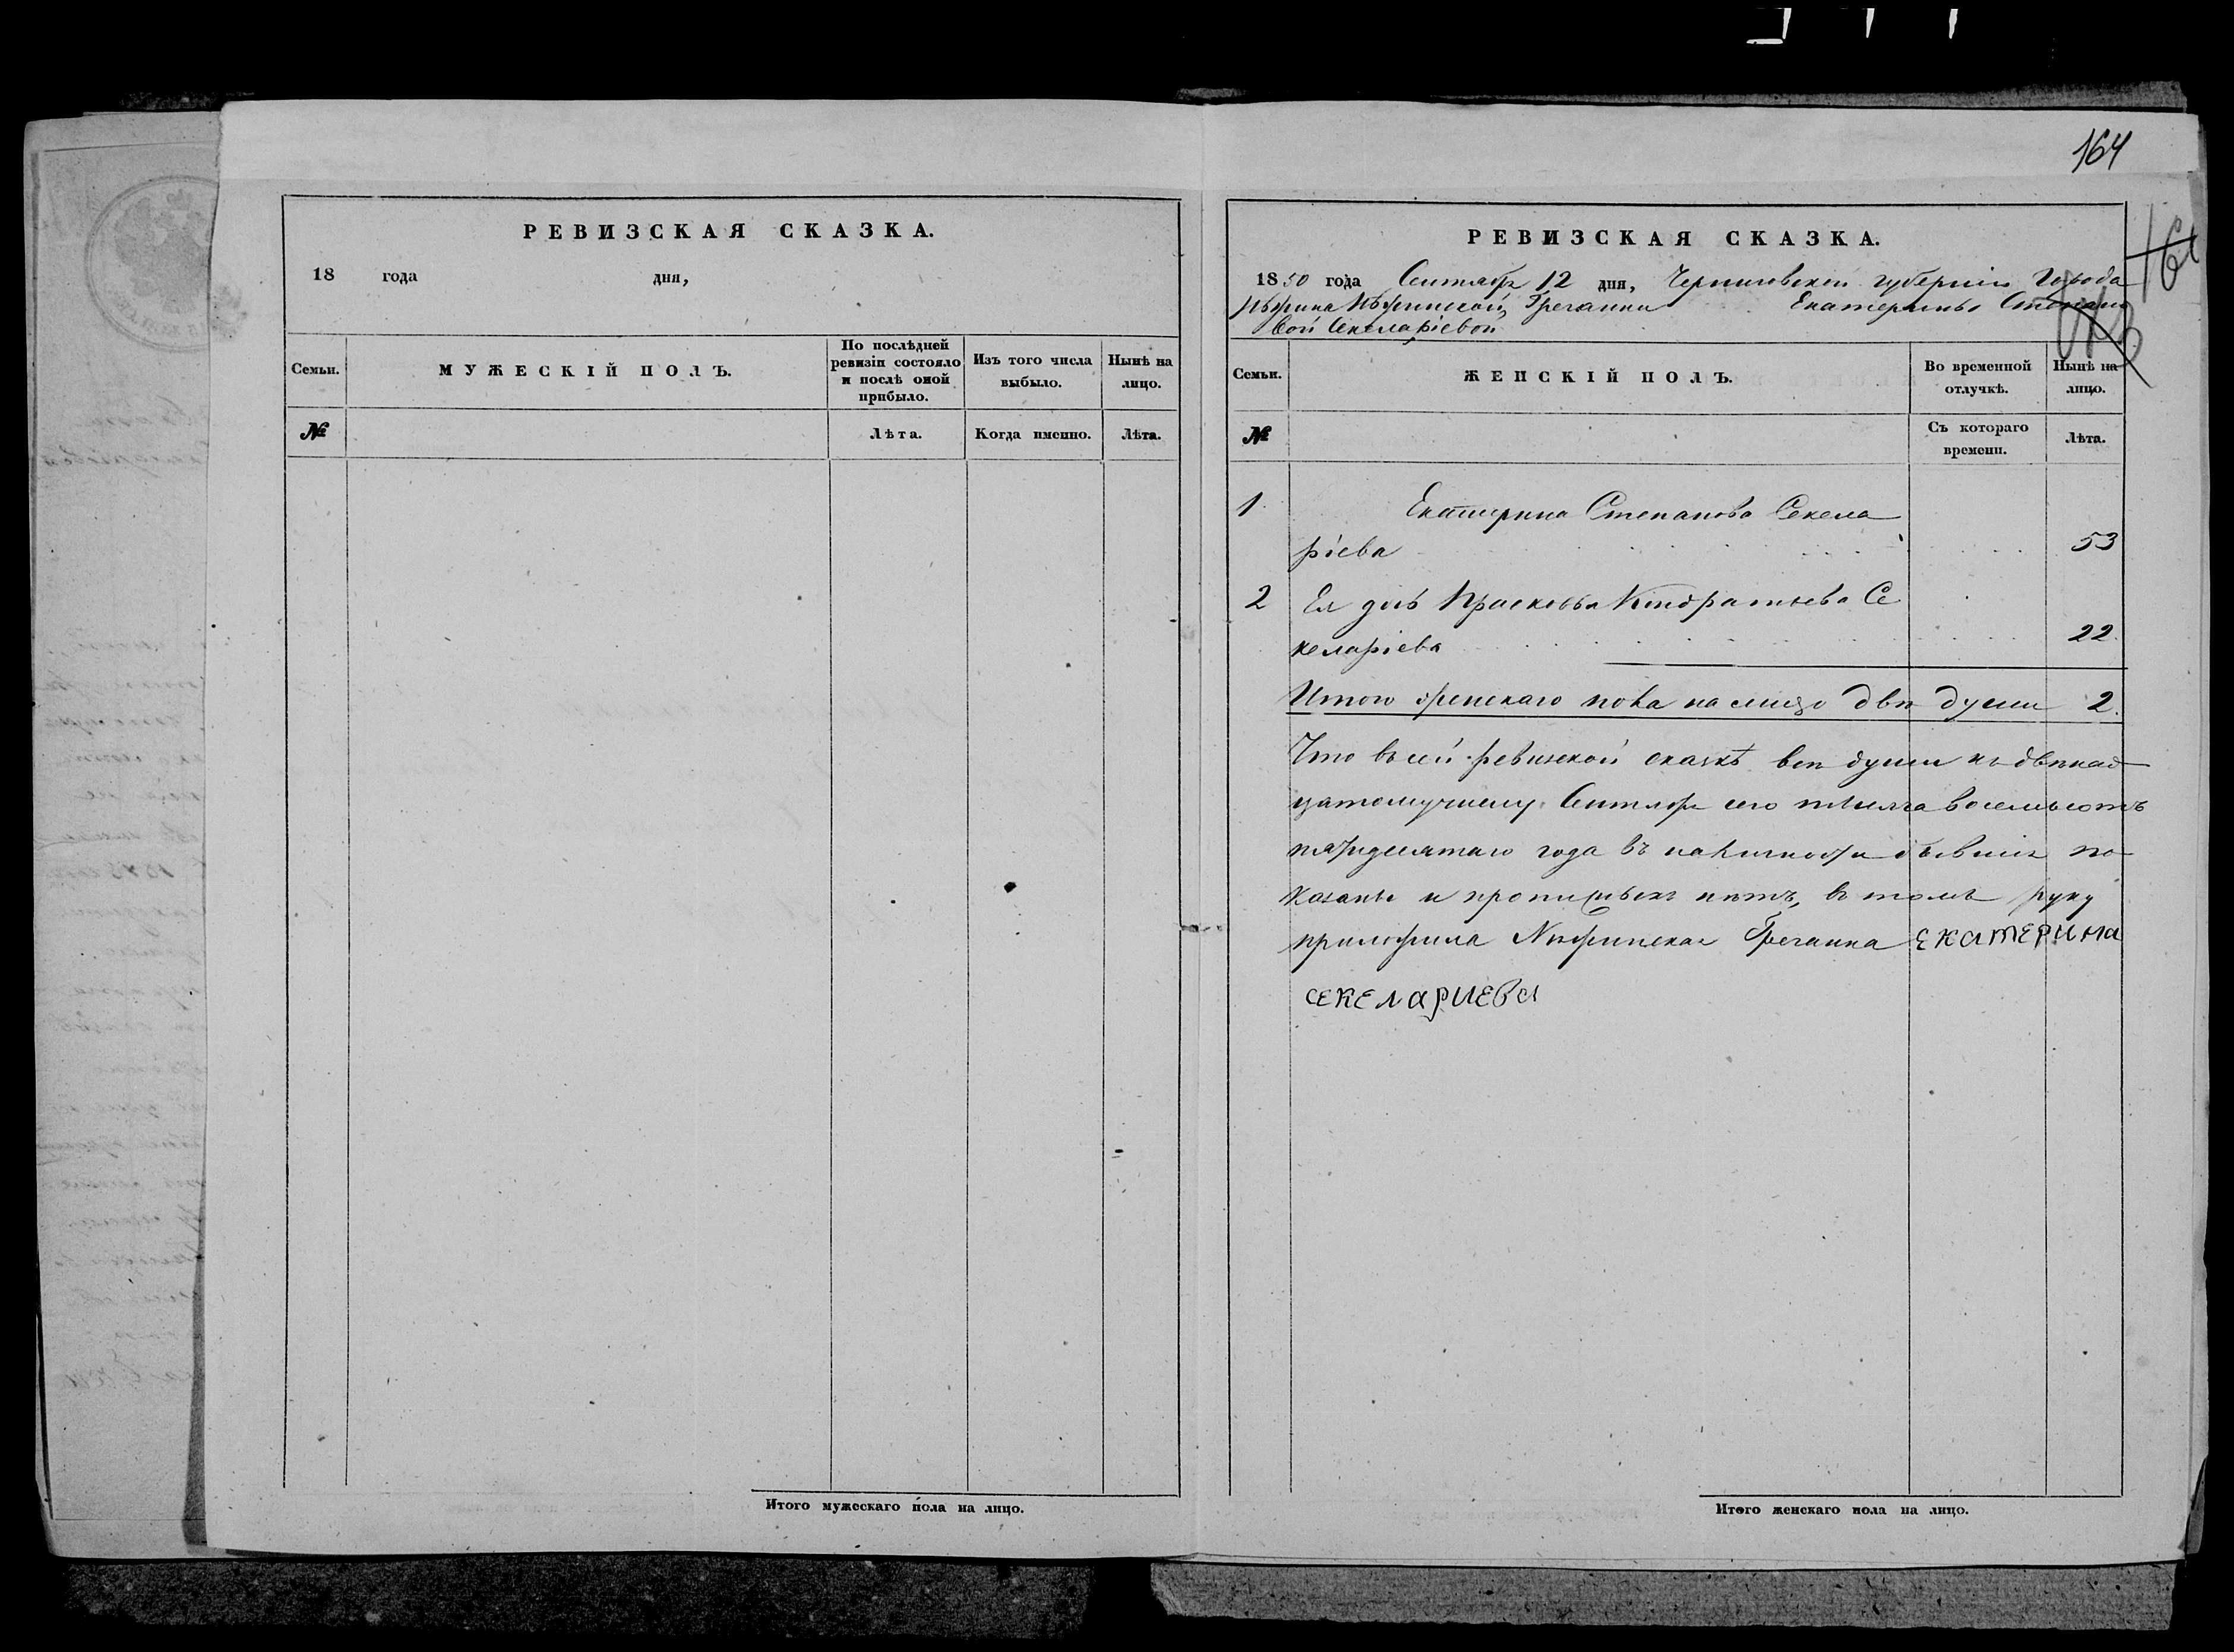 164
РЕВИЗСКАЯ СКАЗКА.
18 года дня,
Семьи.
МУЖЕСКІЙ ПОЛЪ.
По послѣдней ревизіи состояло и послѣ оной прибыло.
Изъ того числа выбыло.
Нынѣ на лицо.
№
Лѣта.
Когда именно.
Лѣта.
Итого мужескаго пола на лицо.
РЕВИЗСКАЯ СКАЗКА.
1850 года Сентября 12 дня, Черниговской губерніи Города
Нѣжина Нѣжинской Гречанки Екатерины Степано
вой Секеларіевой
Семьи.
ЖЕНСКІЙ ПОЛЪ.
Во временной отлучкѣ.
Нынѣ на лицо.
№
Съ котораго времени.
Лѣта.
1 Екатерина Степанова Секела
ріева 53
2 Ея дочь Прасковья Кондратьева Се
келаріева 22
Итого женскаго пола на лицо двѣ души 2.
Что въ сей ревизской сказкѣ всѣ души къ двѣнад
цатому числу Сентября сего тысяча восемьсотъ
пятидесятаго года въ наличности бывшія по
казаны и прописныхъ нѣтъ, въ томъ руку
приложила Нѣжинская Гречанка ЕКАТЕРИНА
СЕКЕЛАРИЕВА
Итого женскаго пола на лицо.